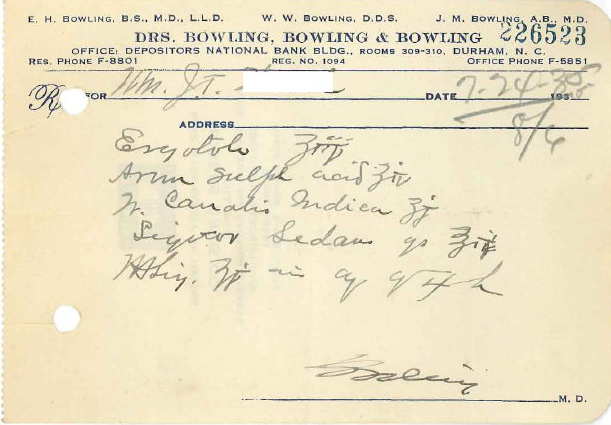 E. H. BOWLING, B.S., M.D., L.L.D. W. W. BOWLING, D.D.S. J. M. BOWLING, A.B., M.D.
DRS. BOWLING, BOWLING & BOWLING 226523
OFFICE: DEPOSITORS NATIONAL BANK BLDG., ROOMS 309-310, DURHAM, N. C.
RES. PHONE F-8801 REG. NO. 1094 OFFICE PHONE F-5851
Rx FOR J.T. DATE 7-24-35 193
ADDRESS 8/6
Ergotole
Arom Sulph acid
Indica
Sedans qs
in aq q 4 h
Bowling
M. D.